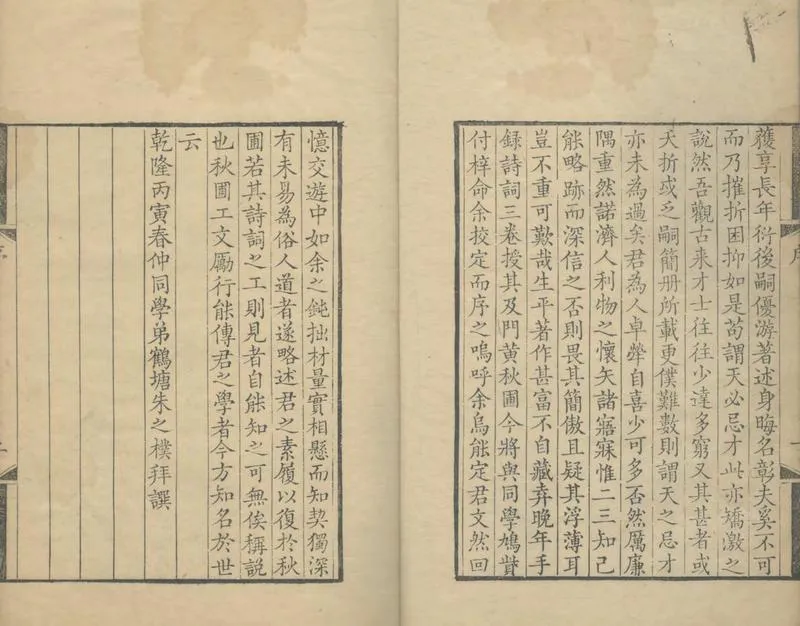 獲享長年衍後嗣優游著述身晦名彰夫奚不可
而乃摧折困抑如是苟謂天必忌才此亦矯激之
說然吾觀古来才士往往少達多窮又其甚者或
夭折或乏嗣簡册所載更僕難數則謂天之忌才
亦未為過矣君為人卓犖自喜少可多否然厲廉
隅重然諾濟人利物之懷矢諸寤寐惟二三知己
能略跡而深信之否則畏其簡傲且疑其浮薄耳
豈不重可歎哉生平著作甚富不自藏弆晚年手
録詩詞三卷授其及門黄秋圃今將與同學鳩貲
付梓命余挍定而序之嗚呼余烏能定君文然回
憶交遊中如余之鈍拙材量實相懸而知契獨深
有未易為俗人道者遂略述君之素履以復於秋
圃若其詩詞之工則見者自能知之可無俟稱說
也秋圃工文勵行能傳君之學者今方知名於世
云
乾隆丙寅春仲同學弟鶴塘朱之樸拜譔
序